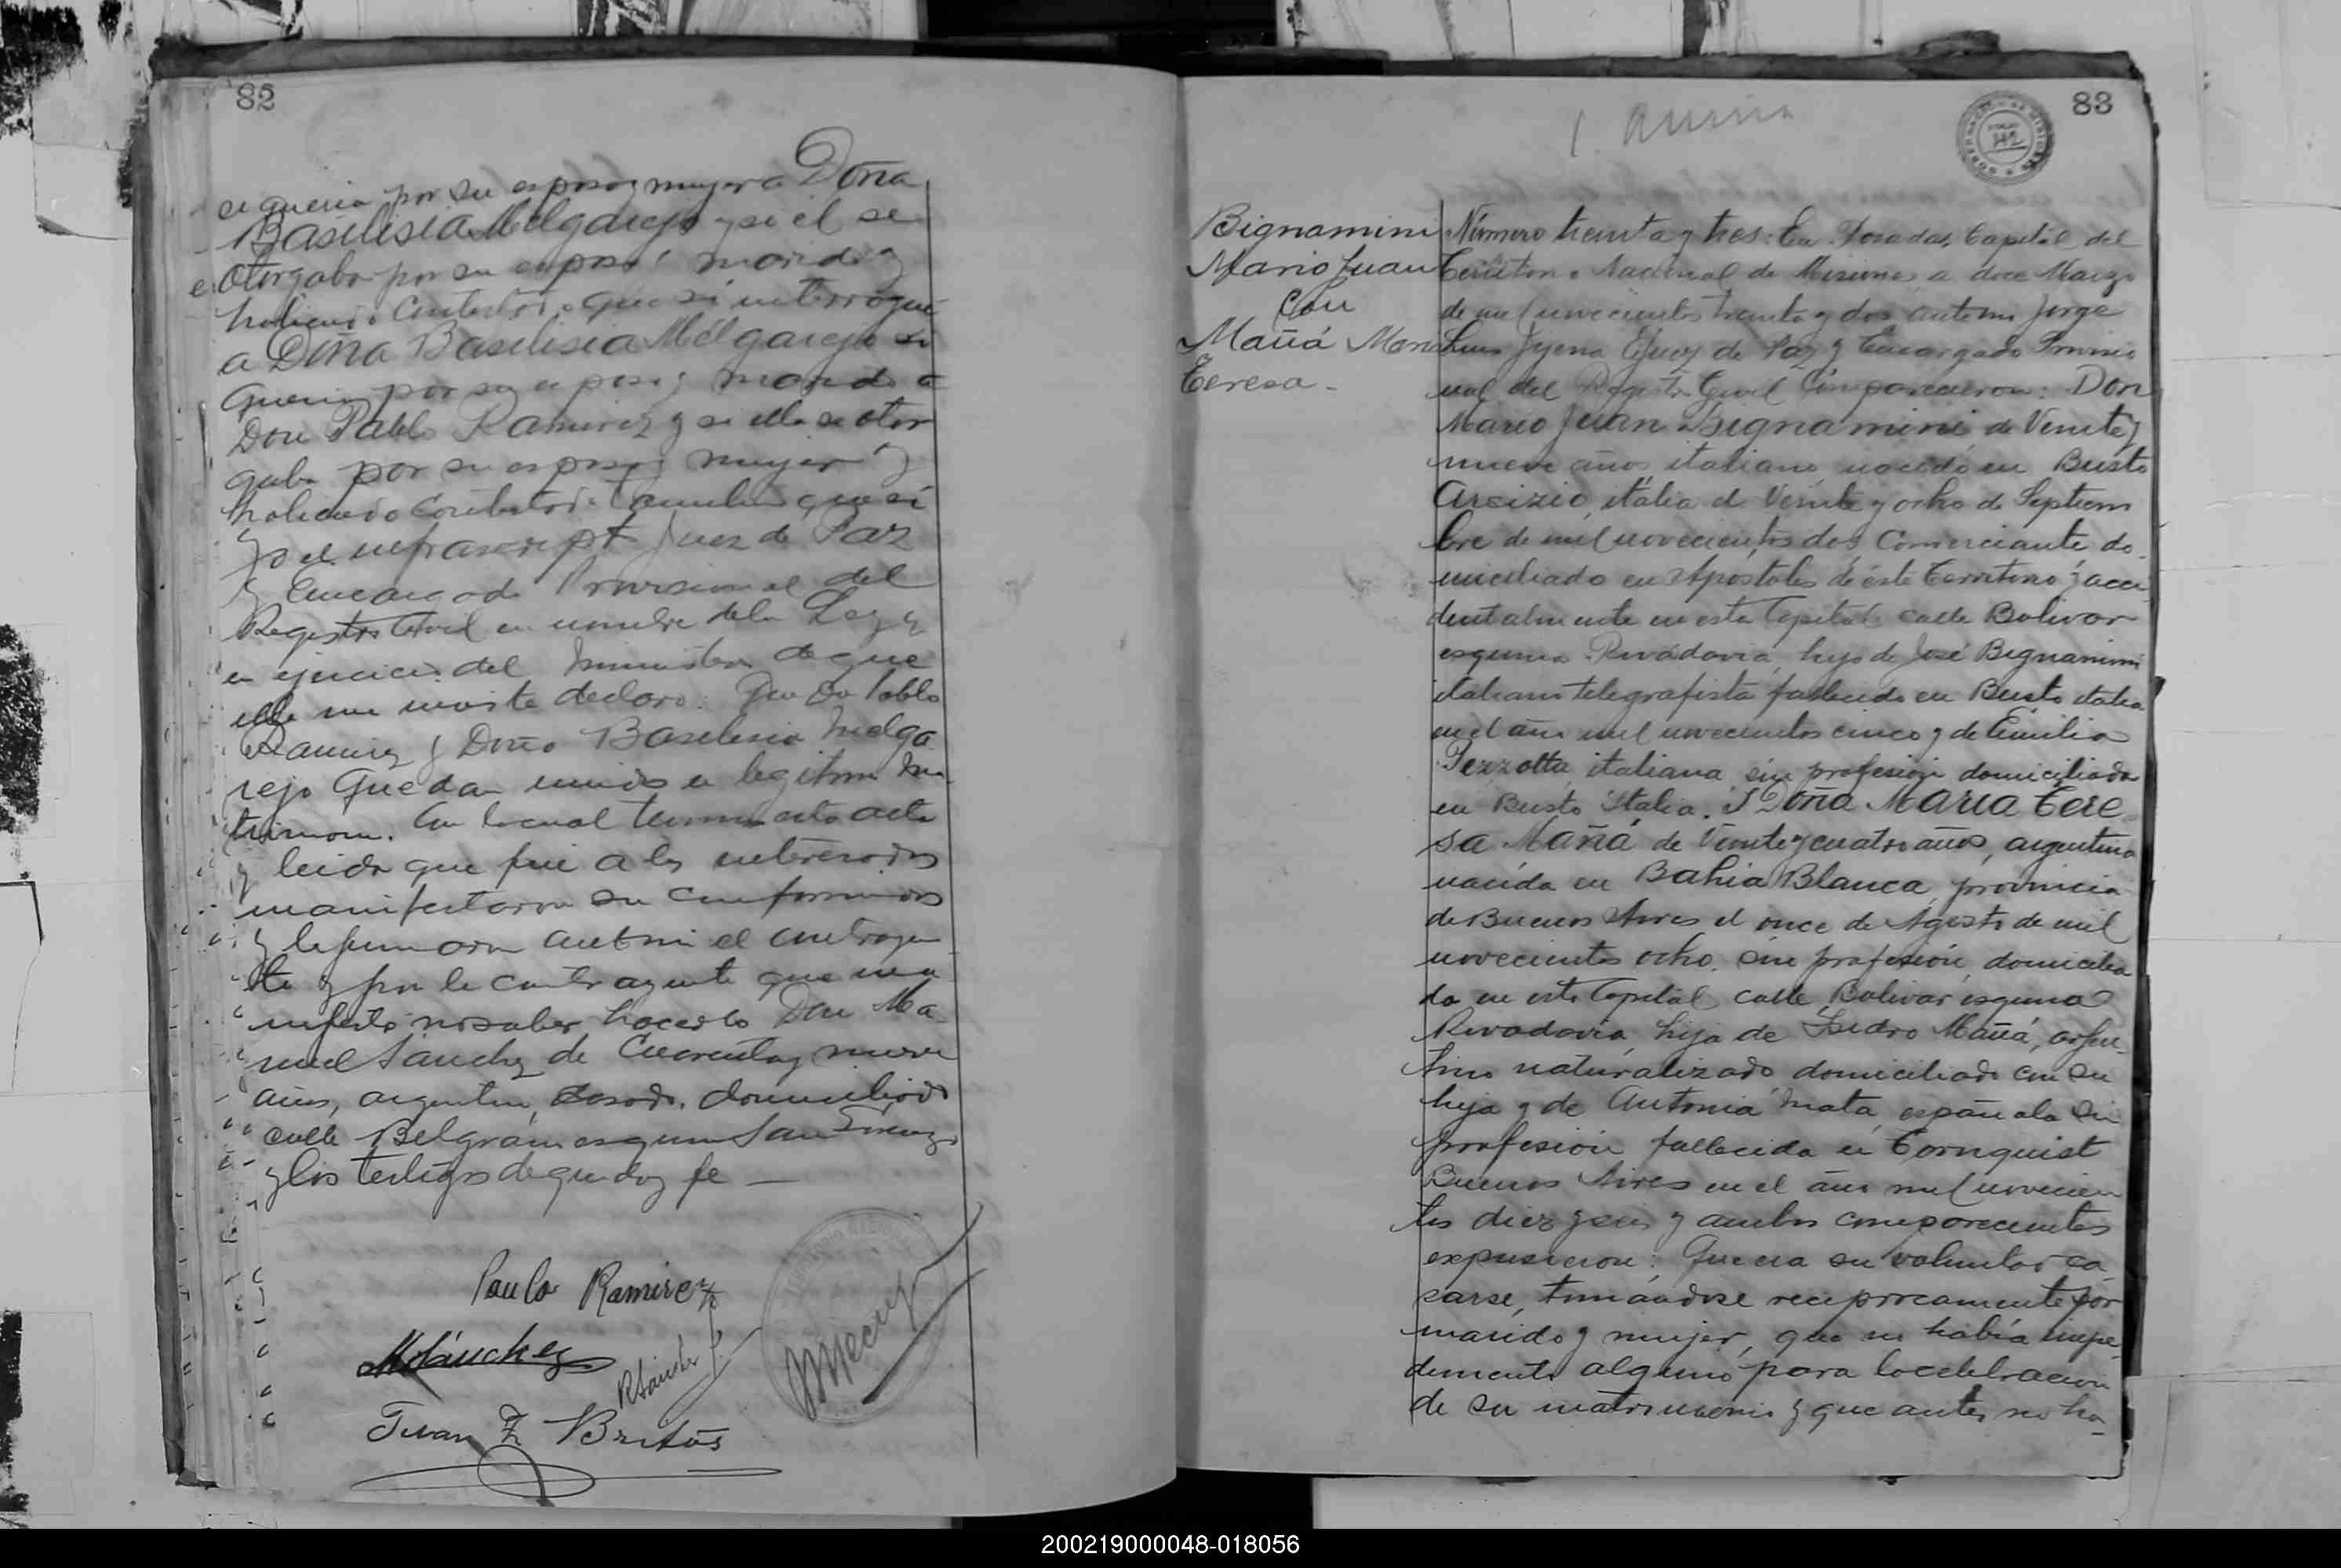 82
se queria por su esposa y mujer a Doña
Basilisia Melgarejo y si él se
otorgaba por su esposo y marido y
habiendo contestado que sí interrogué
a Doña Basilisia Melgarejo si
queria por su esposo y marido a
Don Pablo Ramirez y si ella se otor
gaba por su esposa y mujer y
habiendo contestado tambien que sí
yo el infrascripto Juez de Paz
y Encargado Provisional del
Registro Civil en nombre de la Ley y
en ejercicio del ministerio de que
ella me inviste declaro: Que Don Pablo
Ramirez y Doña Basilisia Melga
rejo quedan unidos en legitimo ma
trimonio. Con lo cual termino esta acta
y leida que fué a los interesados
manifestaron su conformidad
y la firmaron ante mi el contrayen
te y por la contrayente que ma
nifestó no saber hacerlo Don Ma
nuel Sanchez de Cuarenta y nueve
años, argentino, casado, domiciliado
calle Belgrano esquina San Lorenzo
y los testigos de que doy fe —
Paulo Ramirez
MSánchez
Juan Z Britos
83
Bignamini
Mario Juan
con
Mañá Maria
Teresa -
Número treinta y tres: En Posadas, Capital del
Territorio Nacional de Misiones a doce Marzo
de mil novecientos treinta y dos ante mi Jorge
Luis Juez de Paz y Encargado Provisio
nal del Registro Civil Comparecieron: Don
Mario Juan Bignamini de Veinte y
nueve años italiano nacido en Busto
Arcizio, itália el Veinte y ocho de Septiem
bre de mil novecientos dos Comerciante do
miciliado en Apóstoles de éste Territorio y acci
dentalmente en esta Capital calle Bolivar
esquina Rivadavia, hijo de José Bignamini
italiano telegrafista fallecido en Busto italia
en el año mil novecientos cinco y de Emilia
Pezzotta italiana sin profesión domiciliada
en Busto Italia. Y Doña Maria Tere
sa Mañá de Veinte y cuatro años, argentina
nacida en Bahia Blanca, provincia
de Buenos Aires el once de Agosto de mil
novecientos ocho, sin profesión, domicilia
da en esta Capital calle Bolivar esquina
Rivadavia, hija de Isidro Mañá, argen-
tino naturalizado domiciliado con su
hija y de Antonia Mata, española sin
profesión fallecida en Tornquist
Buenos Aires en el año mil novecien
tos diez y seis y ambos comparecientes
expusieron: Que era su voluntad ca
sarse, tomándose reciprocamente por
marido y mujer, que no habia impe-
dimento alguno para la celebracion
de su matrimonio y que antes no ha-
200219000048-018056